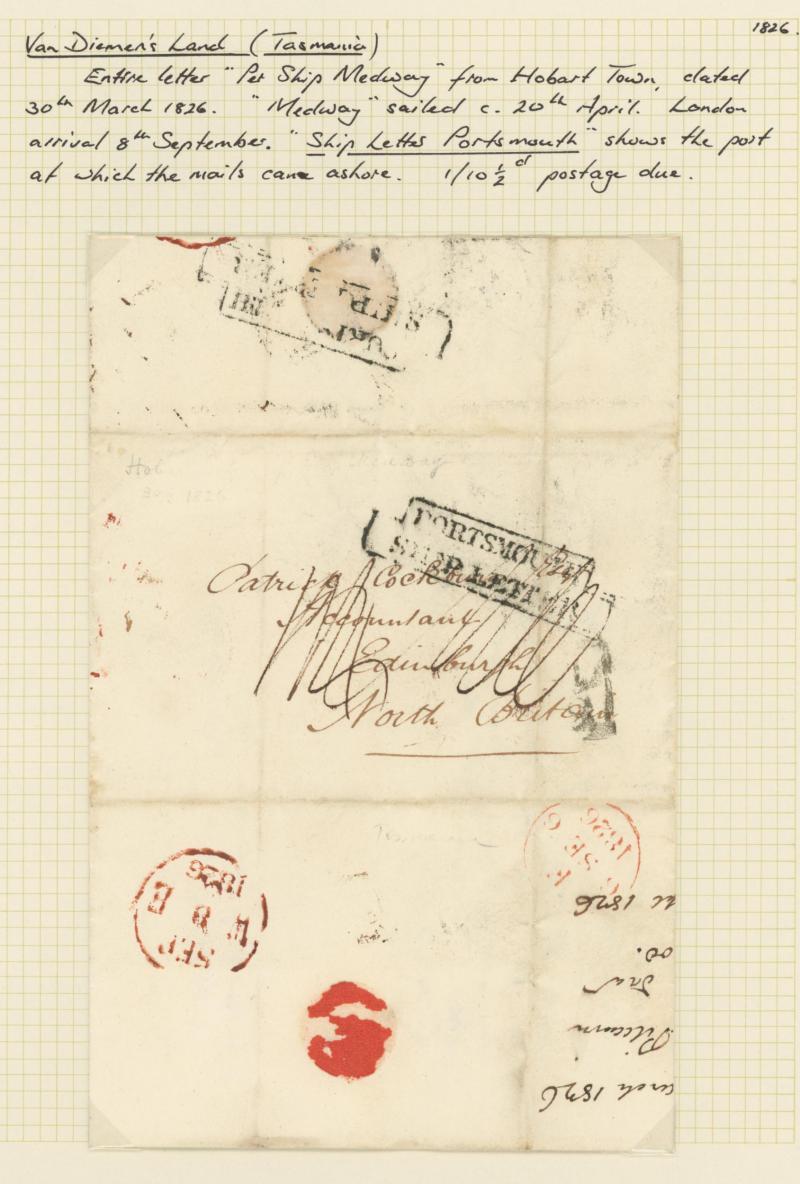 1826.
Van Diemen's Land (Tasmania)
Entire letter "Per Ship Medway" from Hobart Town, dated
30th March 1826. "Medway" sailed c. 20th April. London
arrival 8th September. "Ship Letter Portsmouth" shows the port
at which the mails came ashore. 1/10 ½d postage due.
PORTSMOUTH
SHIP LETTER
Patrick Cockburn Esqr
Accountant
Edinburgh
North Britain
1826
SE 6
1826
B 8 M
SEP
1826
Pitcairn
arch 1826